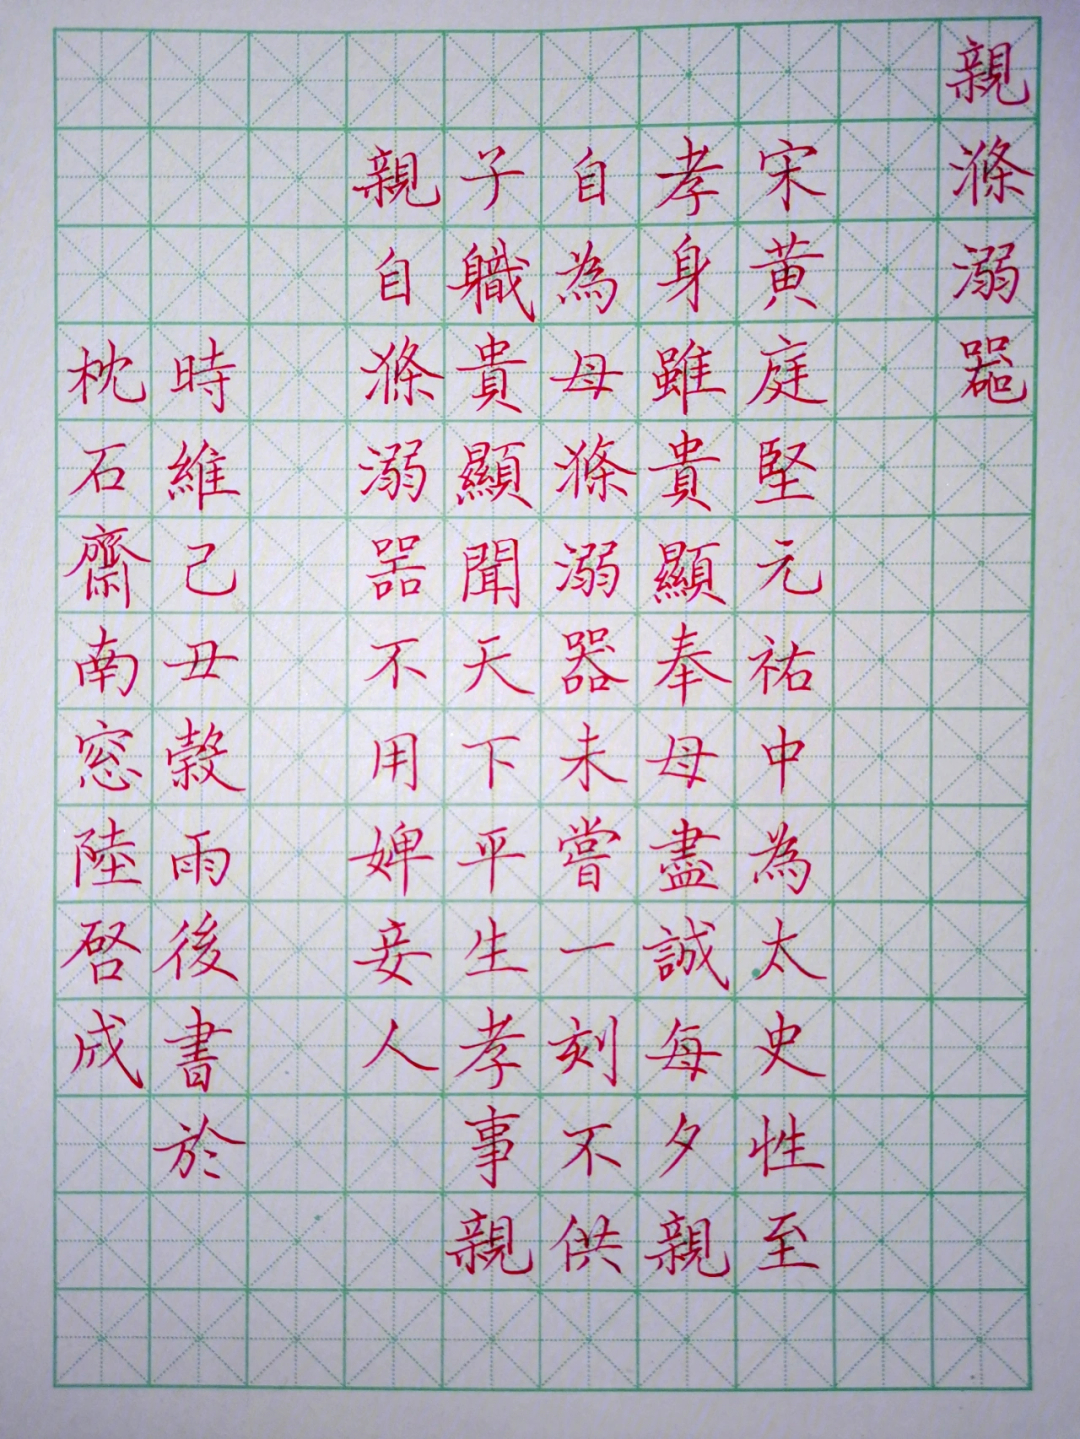 親滌溺器
宋黃庭堅元祐中為太史性至
孝身雖貴顯奉母盡誠每夕親
自為母滌溺器未嘗一刻不供
子職貴顯聞天下平生孝事親
親自滌溺器不用婢妾人
時維己丑穀雨後書於
枕石齋南窓陸啓成